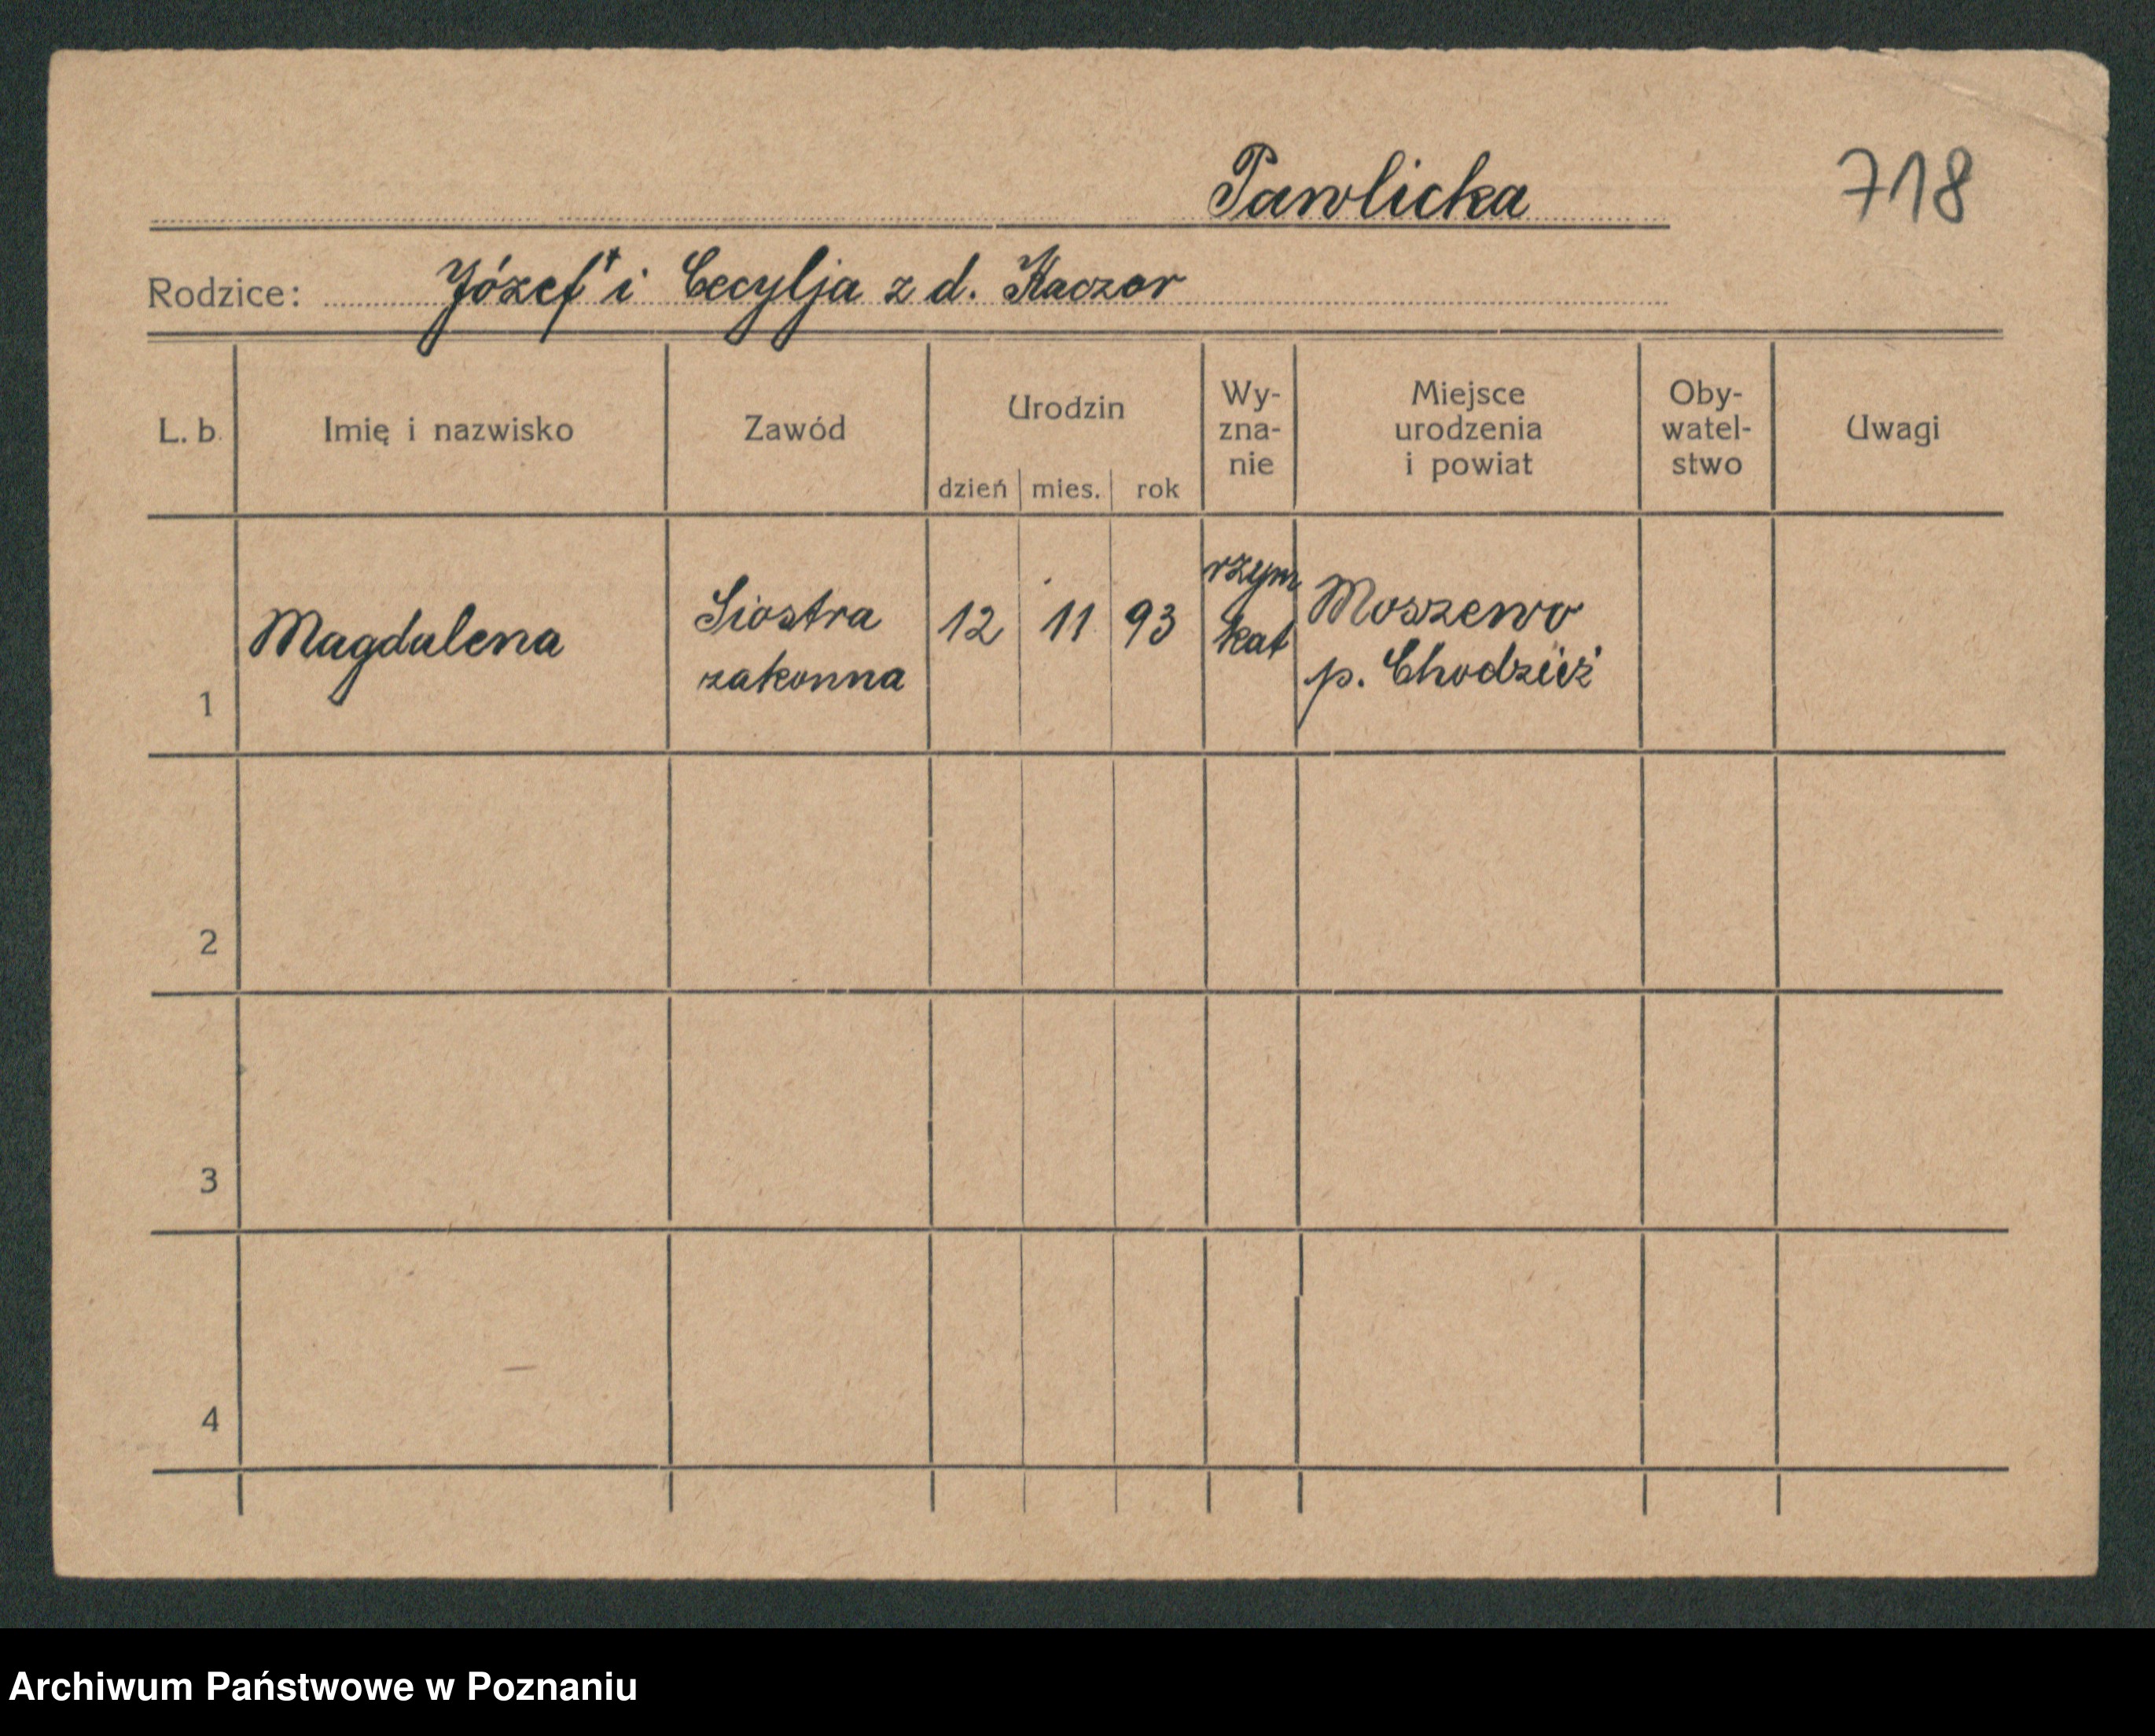 Pawlicka 718
Rodzice: Józef + i Cecylja z d. Kaczor
L. b. Imię i nazwisko Zawód Urodzin dzień mies. rok Wy-zna-nie Miejsce urodzenia i powiat Oby-watel-stwo Uwagi
1 Magdalena Siostra zakonna 12 11 93 rzym kat Moszewo p. Chodzież
2
3
4
Archiwum Państwowe w Poznaniu